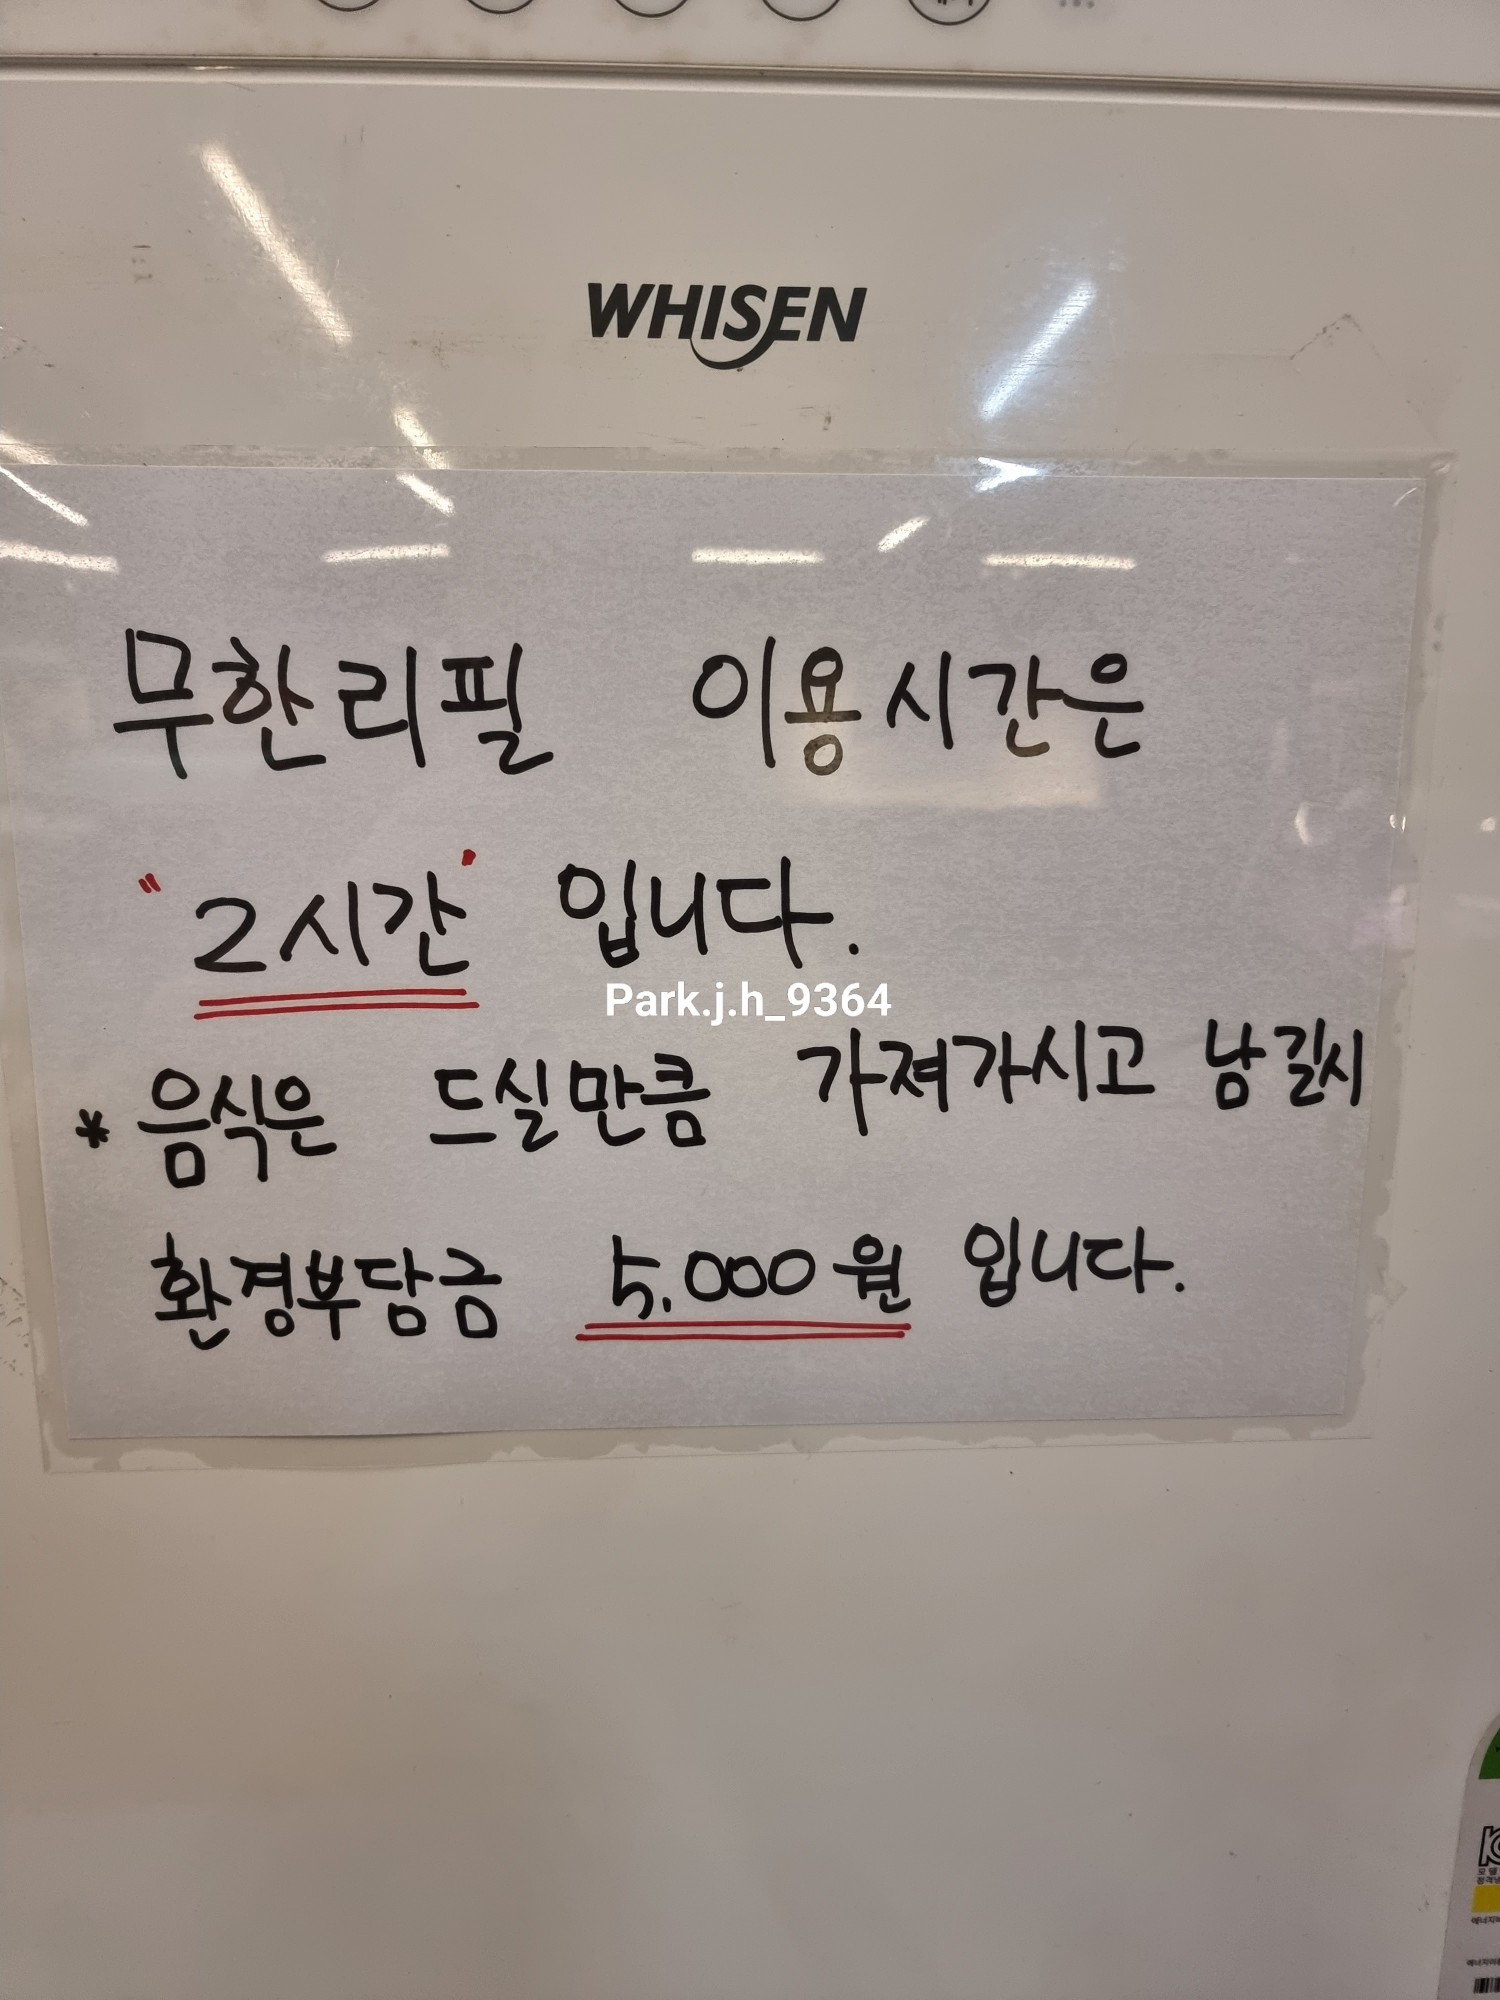 WHISEN
무한리필 이용시간은
"2시간" 입니다.
Park.j.h_9364
* 음식은 드실만큼 가져가시고 남길시
환경부담금 5.000원 입니다.